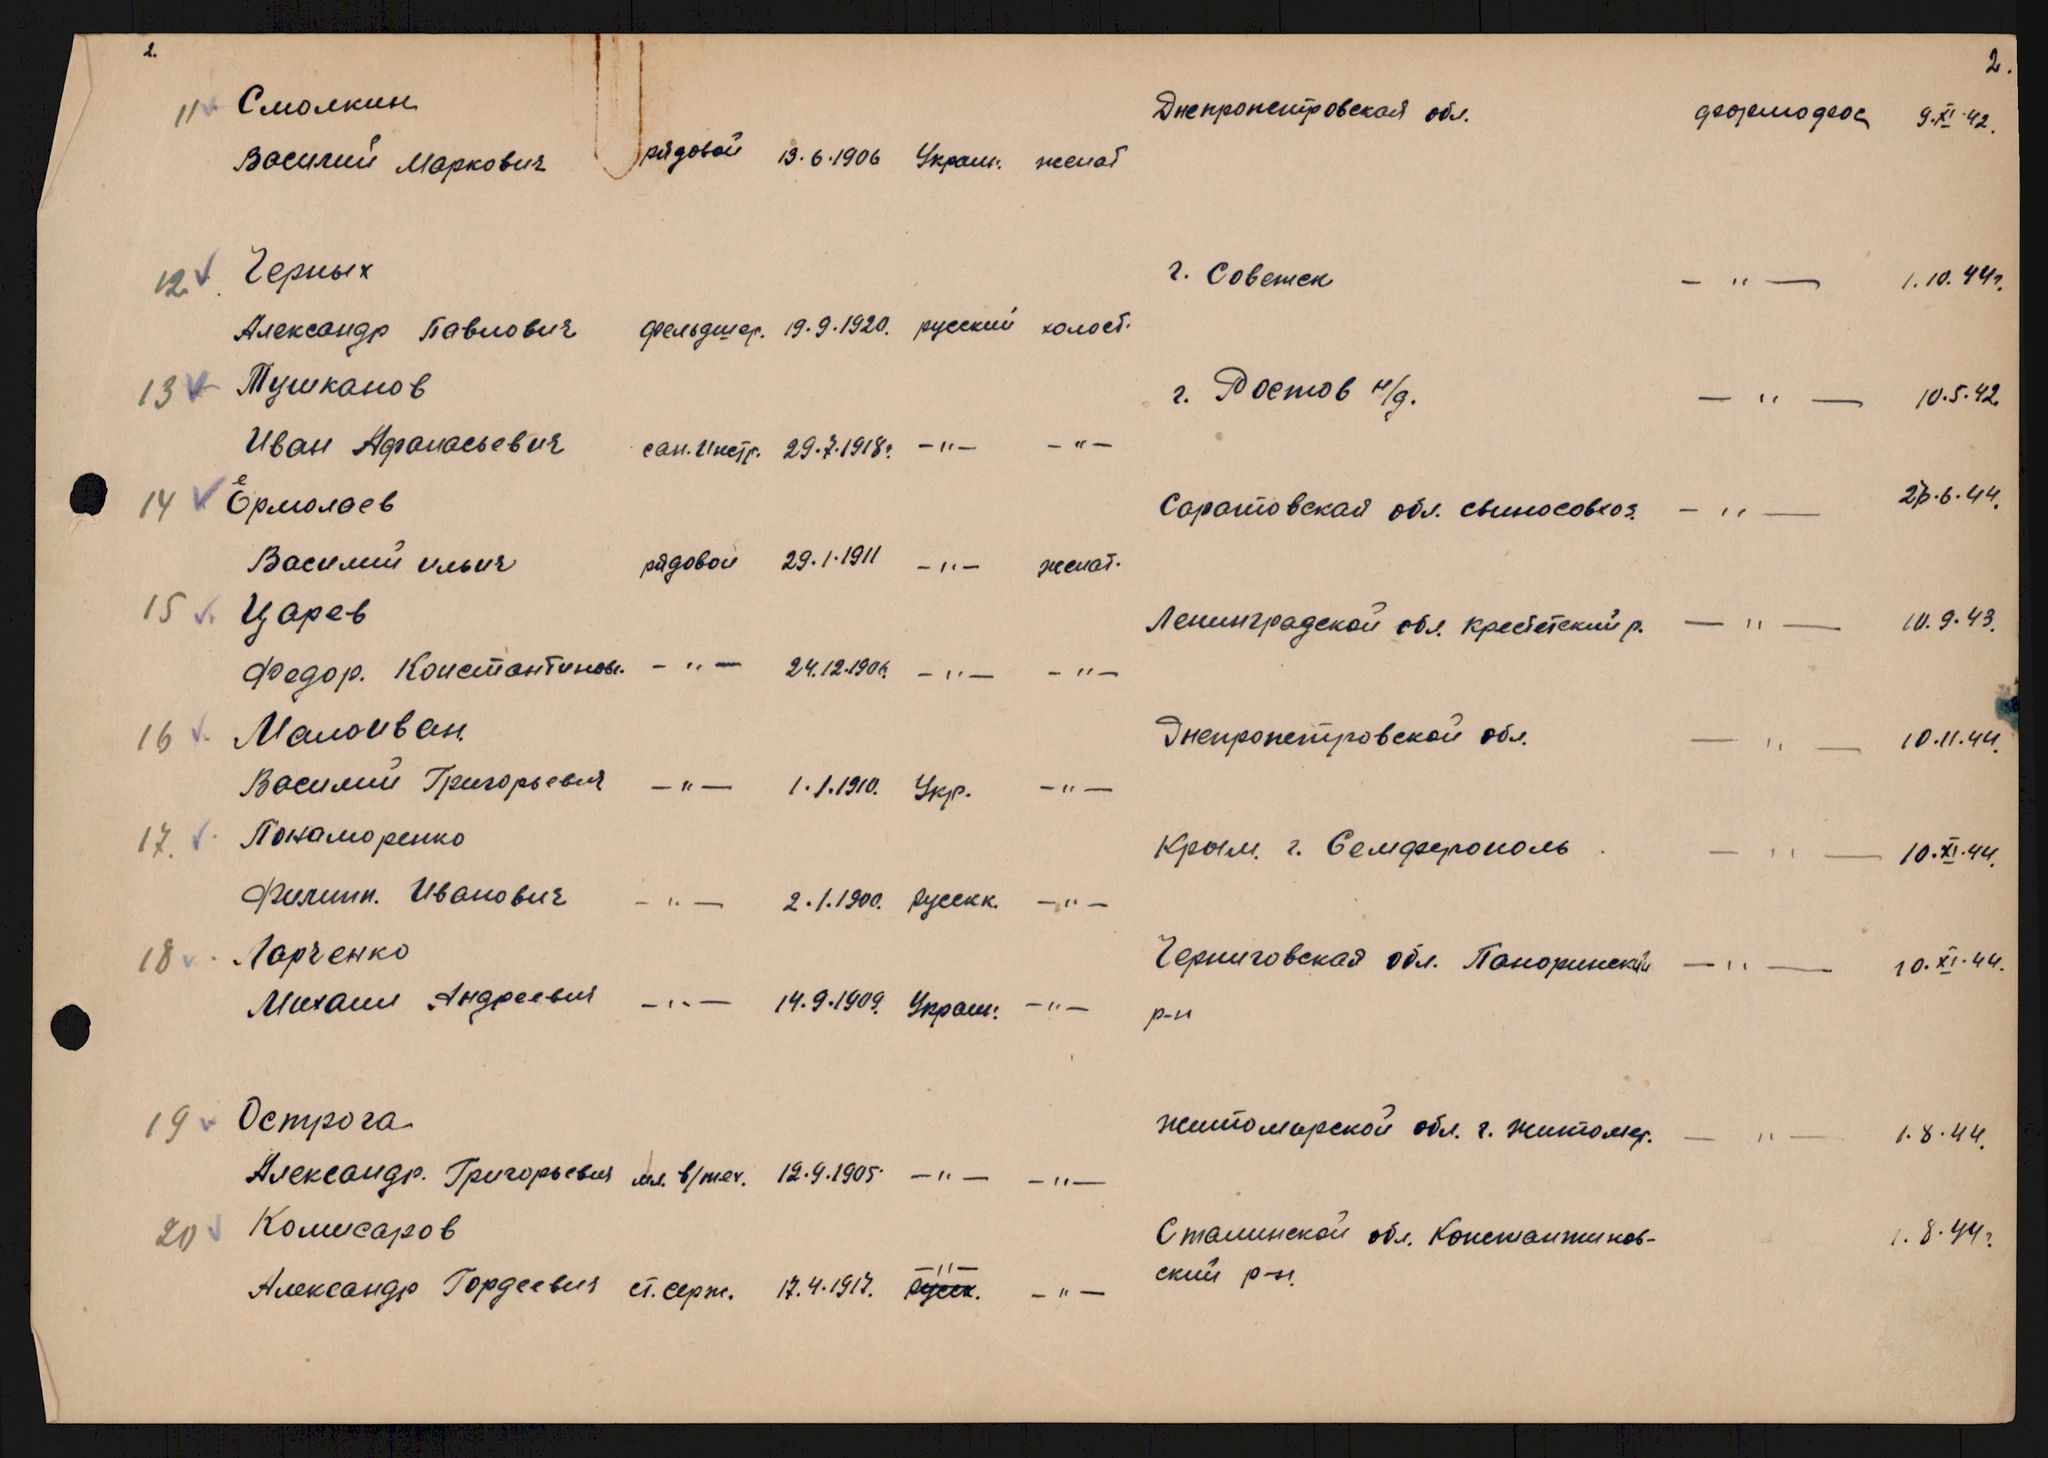 2. 2.
11 Смолкин Днепропетровская обл. 9.XI.42.
Василий Маркович рядовой 19.6.1906 Украин. женат
12. Черных г. Советск — " — 1.10.44г.
Александр Павлович фельдшер. 19.9.1920. русский холост.
13 Тушканов г. Ростов н/д. — " — 10.5.42.
Иван Афанасьевич сан.инстр. 29.7.1918г. — " — — " —
14 Ермолаев Саратовская обл. свиносовхоз. — " — .6.44.
Василий ильич рядовой 29.1.1911 — " — женат.
15 Царев Ленинградской обл. крестетский р. — " — 10.9.43.
Федор. Константинов. — " — 24.12.1906. — " — — " —
16 Малоиван. Днепропетровской обл. — " — 10.11.44.
Василий Григорьевич — " — 1.1.1910. Укр. — " —
17. Понаморенко Крым. г. Семферополь — " — 10.XI.44.
Филипп. Иванович — " — 2.1.1900. Русскк. — " —
18 Ларченко Черниговская обл. Поноринский — " — 10.XI.44.
Михаил Андреевич — " — 14.9.1909. Украин. — " — р-н
19 Острога Житомирской обл. г. Житомер. — " — 1.8.44.
Александр. Григорьевич мл. в/тех. 12.9.1905 — " — — " —
20 Комисаров Сталинской обл. Константинов- 1.8.44г.
Александр Гордеевич ст. серж. 17.4.1917. — " — русск. — " — ский р-н.